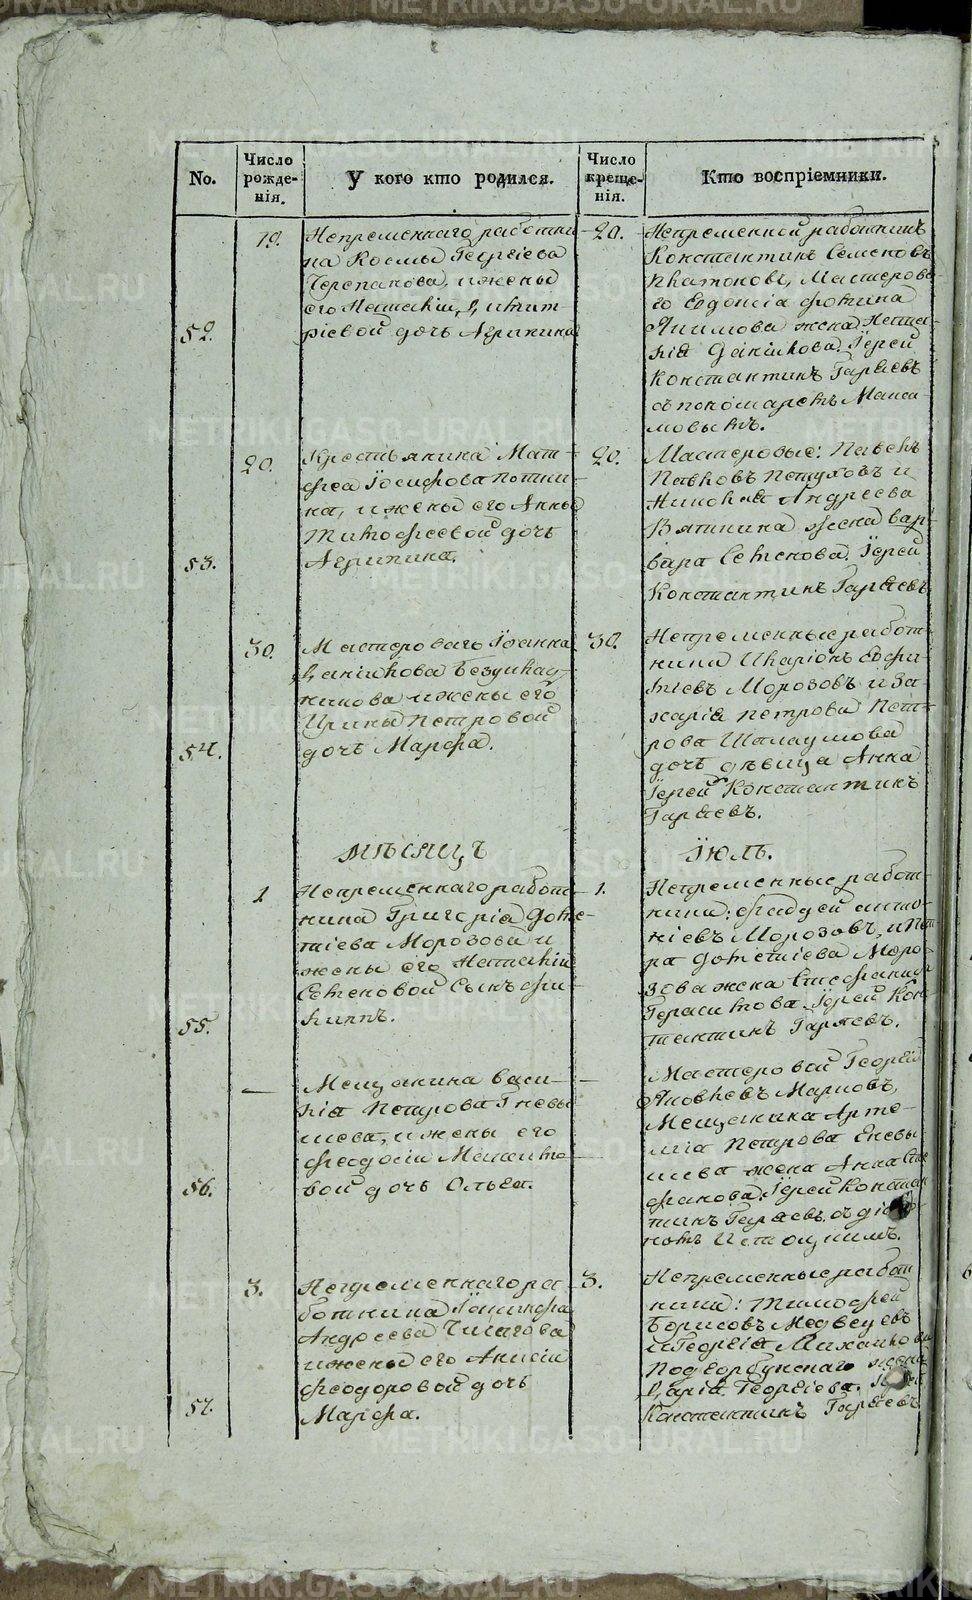 No.
Число рожде-нія.
У кого кто родился.
Число креще-нія.
Кто воспріемники.
52.
19.
Непременнаго работни
на Космы Георгіева
Черепанова, и жены
его Наталіи Дмит-
ріевой дочь Агрипина
20.
Непременной работникъ
Константинъ Семеновъ
Платоновъ, Мастерова-
го
Якимова жена Ната-
лія Данилова. Іерей
Константинъ Гаряевъ
съ пономаремъ
53.
20.
Крестьянина Мат-
фея Іосифова
на, и жены его Анны
Тимофеевой дочь
Агрипина.
20.
Мастеровые: Павелъ
Павловъ Петуховъ и
Николая Андреева
Вяткина жена Вар-
вара Семенова. Іерей
Константинъ Гаряевъ
54.
30.
Мастероваго Іоанна
Данилова
никова и жены его
Ирины Петровой
дочь Марфа.
30.
Непременные работ-
ники Иларіонъ Ефи-
міевъ Морозовъ и За-
харія Петрова Пет-
рова
дочь девица Анна
Іерей Константинъ
Гаряевъ.
мѣсяцъ
Іюль.
55.
1
Непременнаго работ-
ника Григорія Доме-
тіева Морозова и
жены его Наталіи
Семеновой сынъ Фи-
липпъ.
1.
Непременные работ-
ники: Фаддей Анто-
ніевъ Морозовъ, и Пет
ра Дометіева Моро-
зова жена Стефанида
Герасимова. Іерей Кон-
тантинъ Гаряевъ.
56.
—
Мещанина Васи-
лія Петрова Гневы
шева, и жены его
Феодосіи
вой дочь Ольга.
—
Мастеровой Георгій
Яковлевъ Марковъ,
Мещанина Арте-
мія Петрова Гневы
шева жена Анна Сте
фанова. Іерей Констан
тинъ Гаряевъ, съ діа
комъ
57.
3.
Непременнаго ра
ботника
Андреева Чигагова
и жены его Анисіи
Феодоровой дочь
Марфа.
3.
Непременные работ
ники: Тимофей
Борисовъ Медведевъ
и Георгія Михайлова
Подгорбунскаго жена
Дарія Георгіева. Іерей
Константинъ Гаряевъ
METRIKI.GASO-URAL.RU